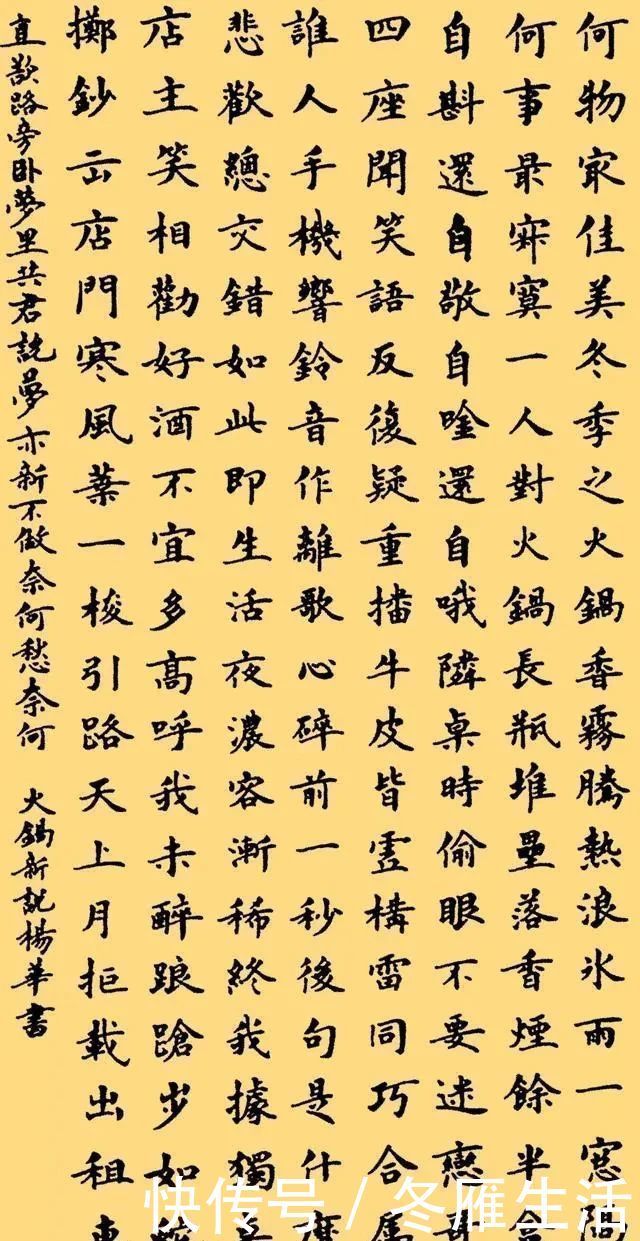 何物最佳美冬季之火鍋香霧騰熱浪冰雨一窓隔
何事最寂寞一人對火鍋長瓶堆壘落香煙餘半
自斟還自敬自唫還自哦隣桌時偷眼不要迷戀
四座聞笑語反復疑重播牛皮皆虛構雷同巧合屬
誰人手機響鈴音作離歌心碎前一秒後句是什麼
悲歡總交錯如此即生活夜濃容漸稀終我據獨
店主笑相勸好酒不宜多高呼我未醉踉蹌步如
擲鈔云店門寒風葉一梭引路天上月拒載出租車
直歎路旁卧夢里共君說夢亦新不做奈何愁奈何
火鍋新說楊華書
快传号/冬雁生活